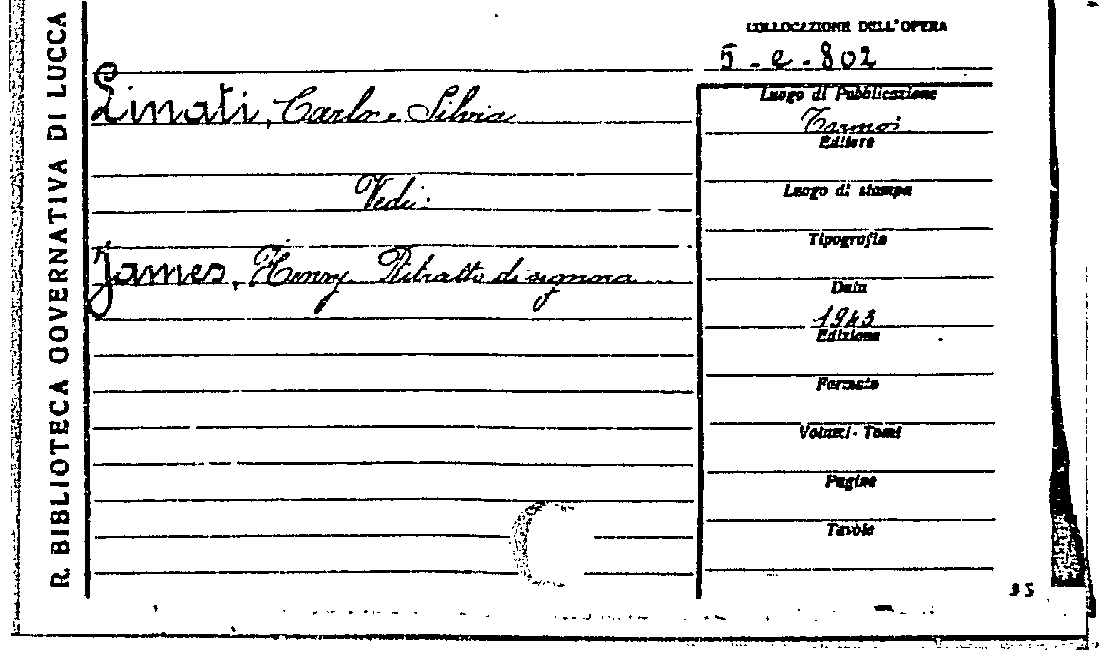 R. BIBLIOTECA GOVERNATIVA DI LUCCA
COLLOCAZIONE DELL'OPERA
5-e-802
Linati, Carlo e Silvia
Vedi:
James, Henry. Ritratto di signora
Luogo di Pubblicazione
Editore
Luogo di stampa
Tipografia
Data
1943
Edizione
Formato
Volumi - Tomi
Pagine
Tavole